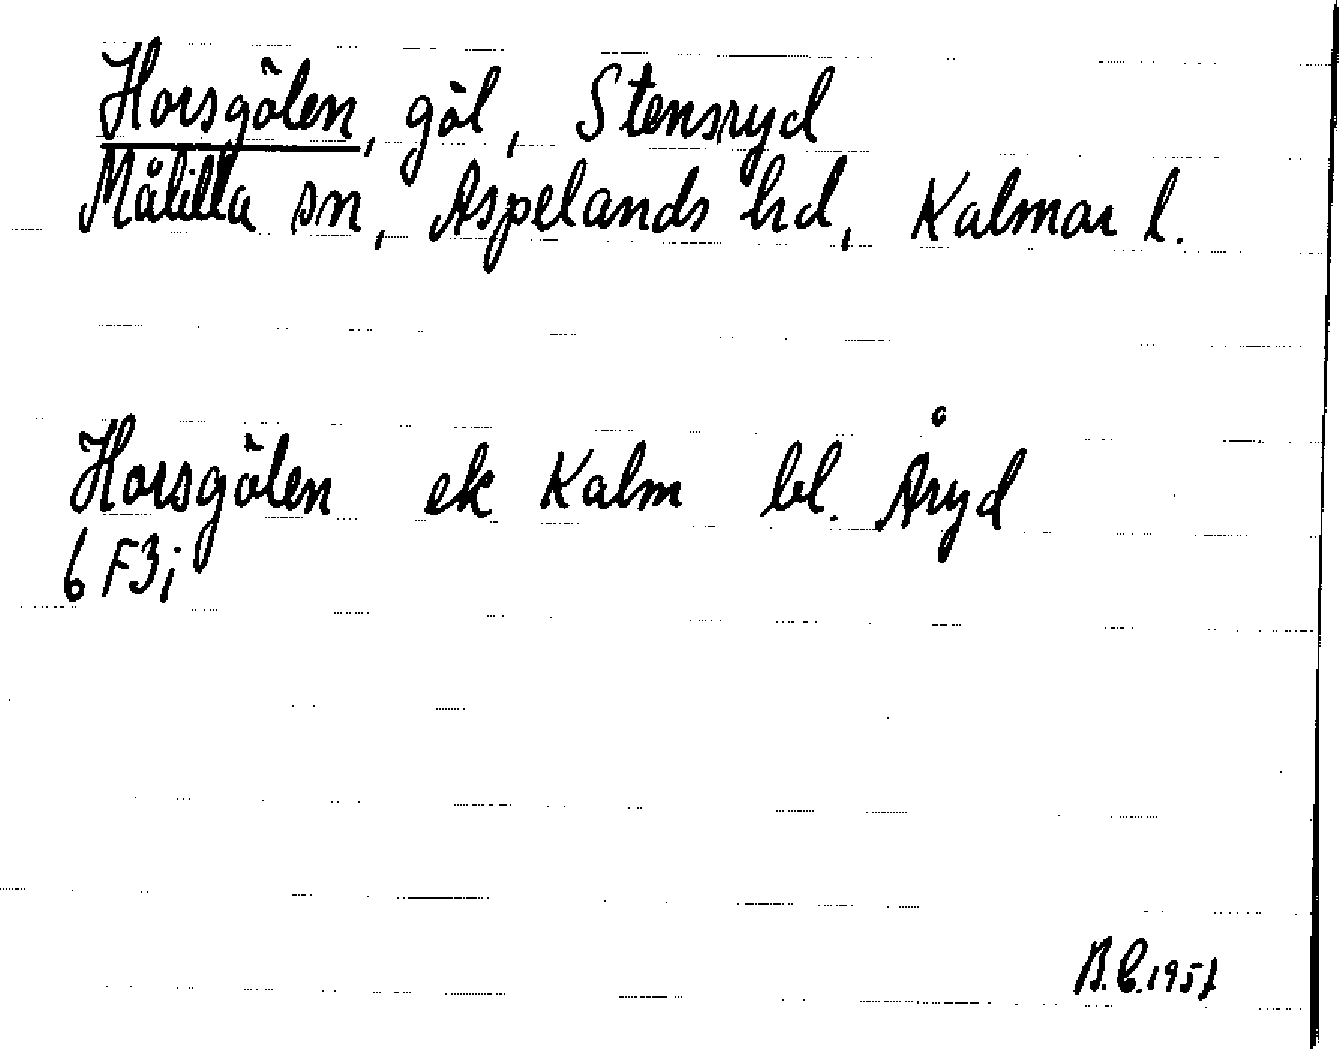 Horsgölen, göl, Stensryd
Målilla sn, Aspelands hd, Kalmar l.
Horsgölen ek Kalm bl. Åryd
6 F3j
B.E.1957